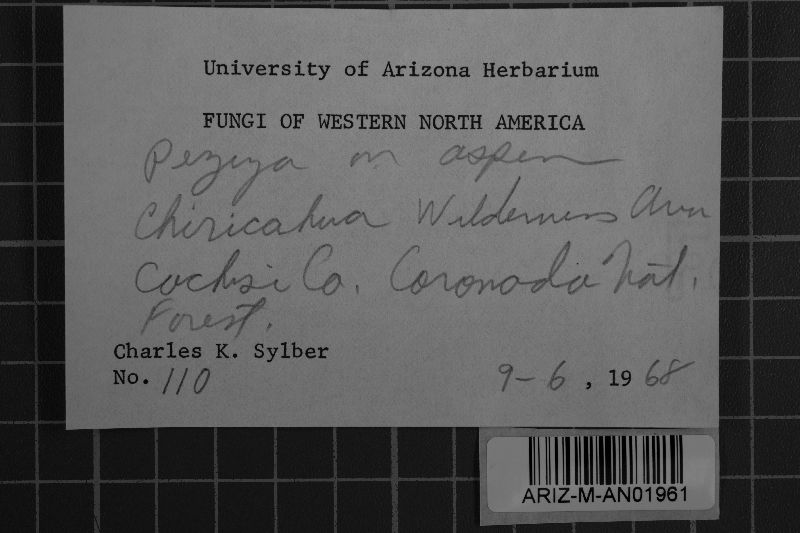 University of Arizona Herbarium
FUNGI OF WESTERN NORTH AMERICA
Peziza on aspen
Chiricahua Wilderness Area
Cochise Co. Coronado Nat.
Forest.
Charles K. Sylber
No. 110
9-6, 1968
ARIZ-M-AN01961